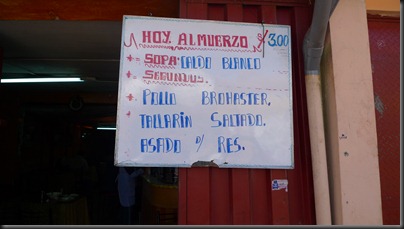 HOY, ALMUERZO S/ 3.00
* = SOPA: CALDO BLANCO
* = SEGUNDOS.
* POLLO BROHASTER.
* TALLARIN SALTADO.
ASADO D/ RES.